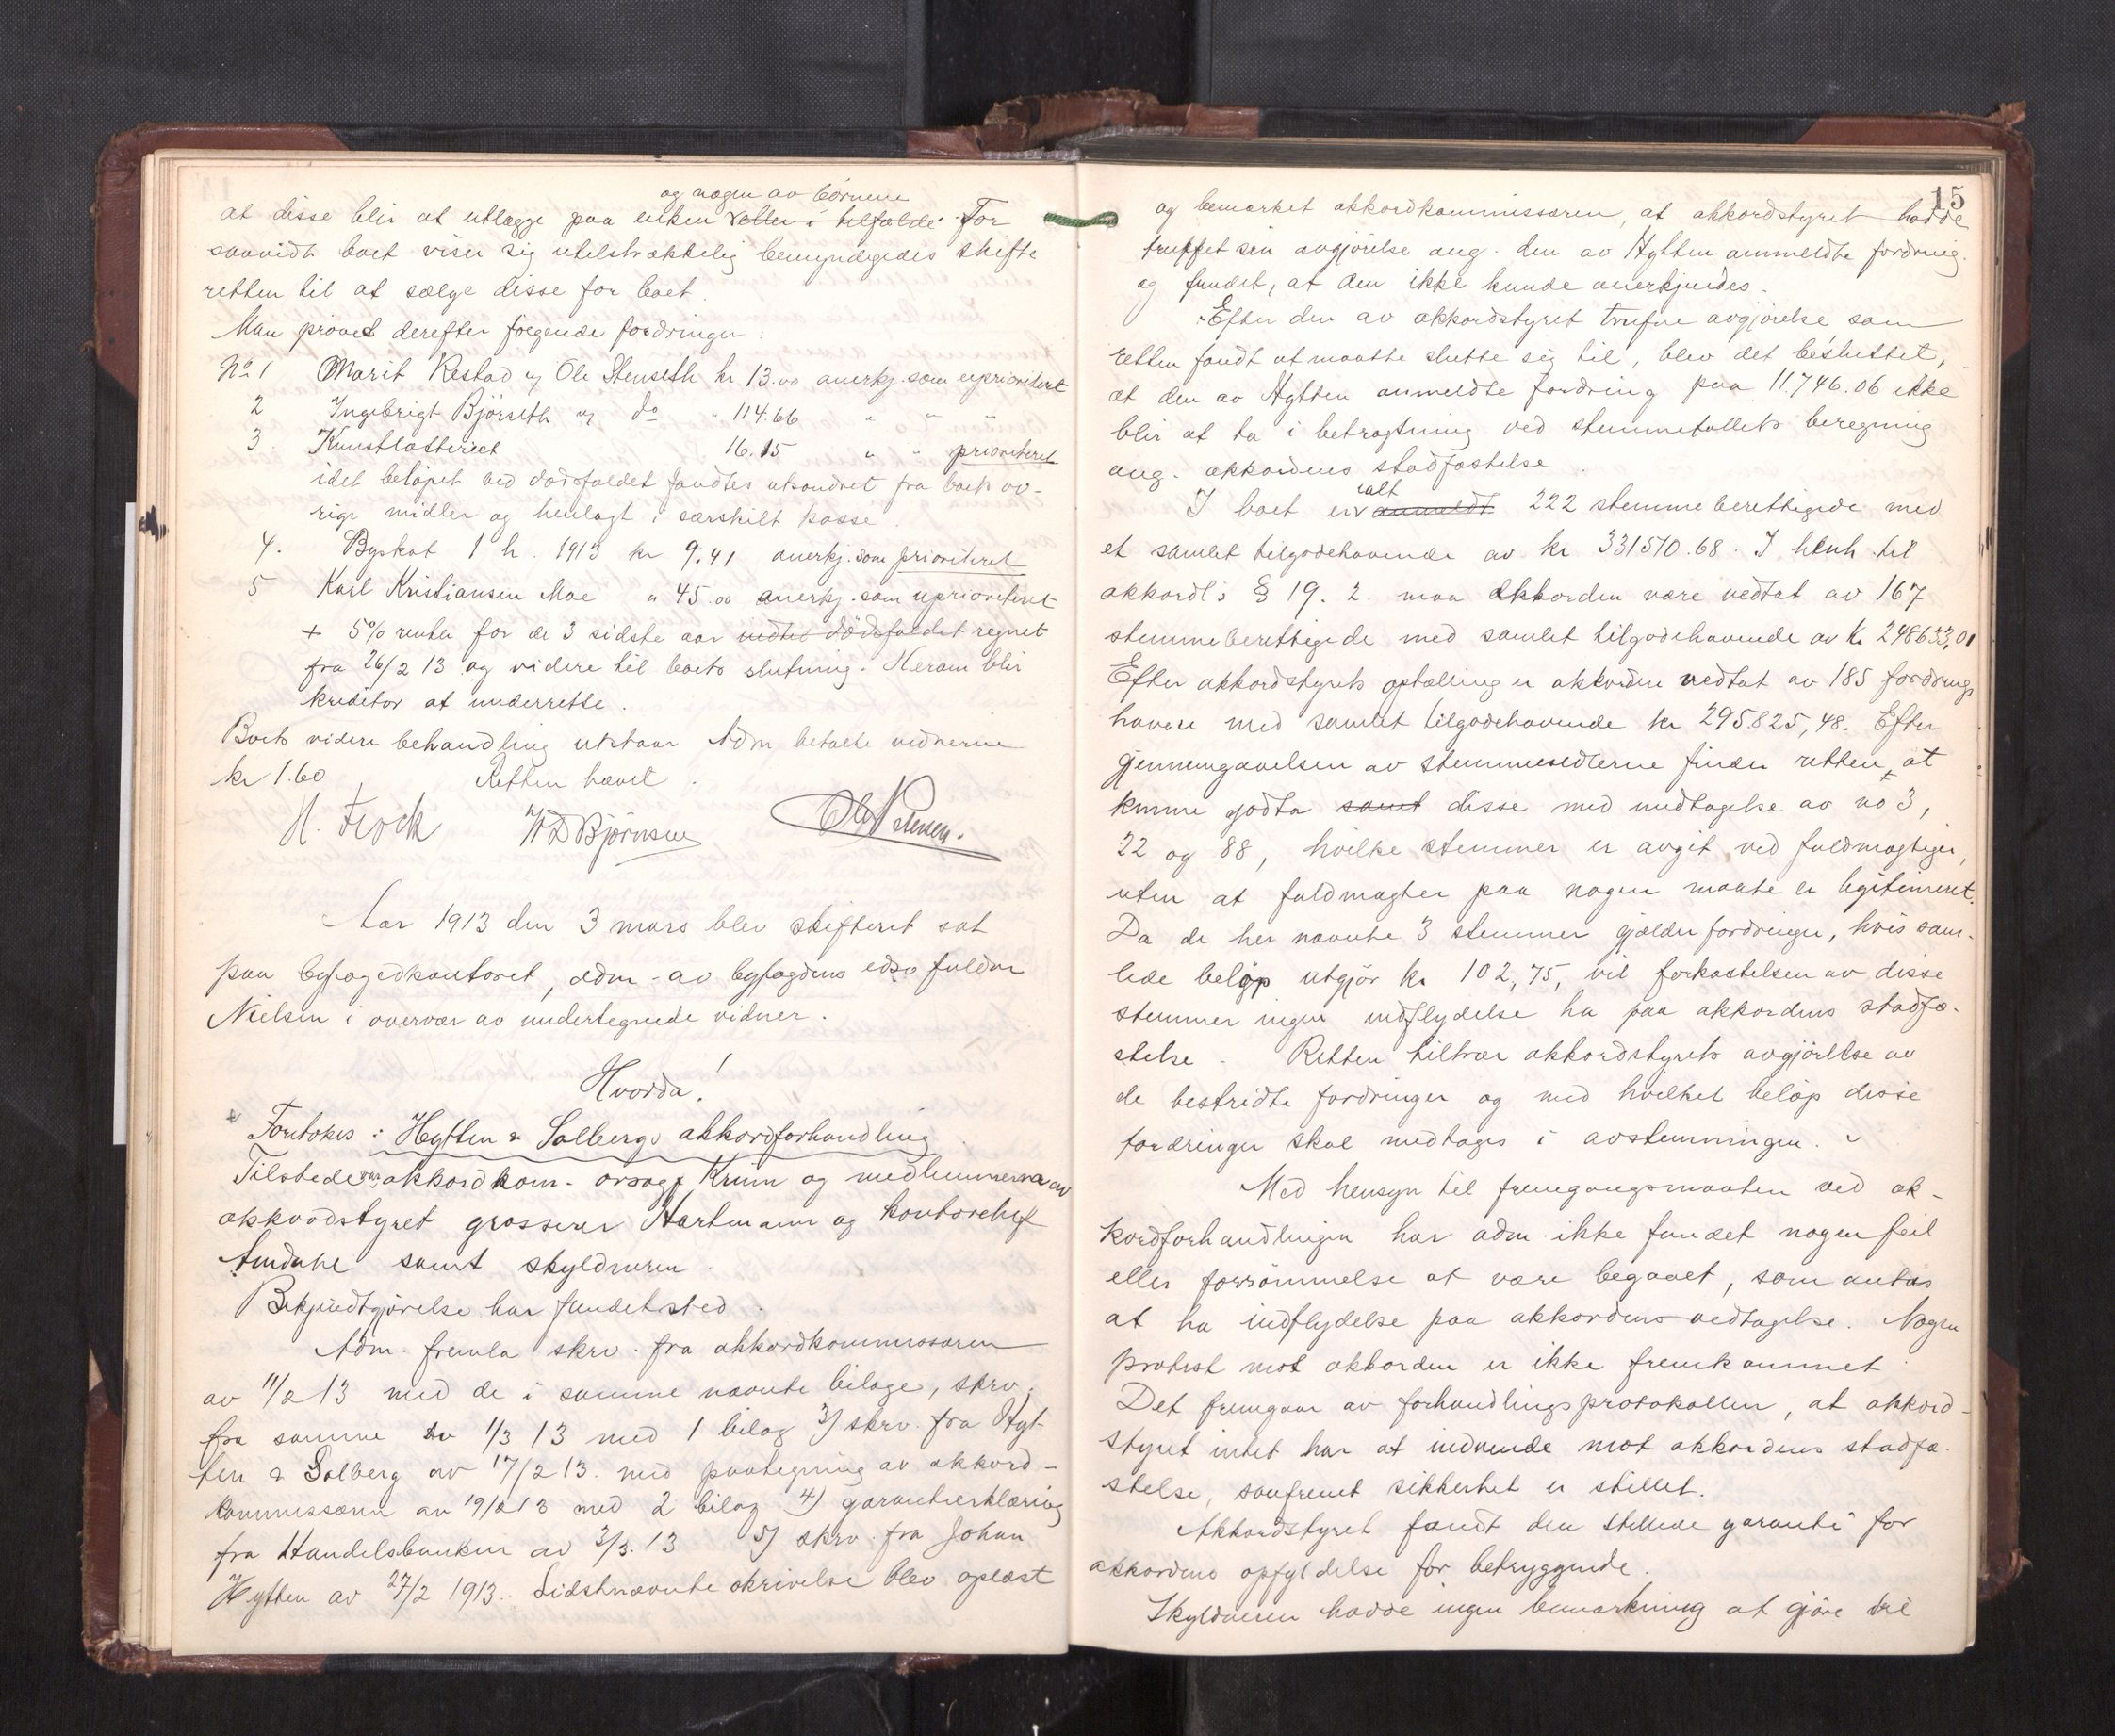 og nogen av børnene
at disse blir at utlægge paa enken eller i tilfælde. For
saavidt boet viser sig utilstrækkelig bemyndigedes skifte
retten til at sælge disse for boet.
Man prøvet derefter følgende fordringer:
No 1 Marit Restad og Ole Stenseth kr 13.00 anerkj. som uprioritert
2 Ingebrigt Bjørseth og do " 114.66 " " "
3. Kunstlotteriet 16.15 " " prioriteret
idet beløpet ved dødsfaldet fandtes utsondret fra boets øv-
rige midler og henlagt i særskilt kasse.
4. Byskat 1 h. 1913 kr 9.41 anerkj. som prioriteret
5 Karl Kristiansen Moe " 45.00 anerkj. som uprioriteret
+ 5% renter for de 3 sidste aar ved dødsfaldet regnet
fra 26/2 13 og videre til boets slutning. Herom blir
kreditor at underrette.
Boets videre behandling utstaar Adm. betalte vidnerne
kr 1.60 Retten hævet.
H. Frock Bjørnsen Nielsen.
Aar 1913 den 3 mars blev skifteret sat
paa byfogedkontoret, adm. av byfogdens edsv fuldm
Nielsen i overvær av undertegnede vidner.
Hvorda!
Foretokes: Hytten & Solbergs akkordforhandling.
Tilstede var akkordkom. orsagf Krum og medlemmerne av
akkordstyret grosserer Hartmann og kontorchef
Amdahl samt skyldneren.
Bekjendtgjørelse har fundet sted.
Adm. fremla skrv. fra akkordkommissæren
av 11/2 13 med de i samme nævnte bilage, skrv.
fra samme av 1/3 13 med 1 bilag 3) skrv. fra Hyt-
ten & Solberg av 17/2 13. med paategning av akkord-
kommissæren av 19/2 13 med 2 bilag 4) garantierklæring
fra Handelsbanken av 3/3. 13 5) skrv. fra Johan
Hytten av 27/2 1913. Sidstnævnte skrivelse blev oplæst
15
og bemerket akkordkommissæren, at akkordstyret hadde
truffet sin avgjørelse ang. den av Hytten anmeldte fordring.
og fundet, at den ikke kunde anerkjendes.
Efter den av akkordstyret trufne avgjørelse som
retten fandt at maatte slutte sig til, blev det besluttet,
at den av Hytten anmeldte fordring paa 11.746.06 ikke
blir at ta i betragtning ved stemmetallets beregning
ang. akkordens stadfæstelse.
ialt
I boet er anmeldt 222 stemmeberettigede med
et samlet tilgodehavende av kr 331510.68. I henh. til
akkordl: § 19. 2. maa akkorden være vedtat av 167
stemmeberettigede med samlet tilgodehavende av Kr 248633,01
Efter akkordstyrets optælling er akkorden vedtat av 185 fordrings
havere med samlet tilgodehavende kr 295825,48. Efter
gjennemgaaelsen av stemmesedlerne finder retten at
kunne godta samt disse med undtagelse av no 3,
22 og 88, hvilke stemmer er avgit ved fuldmægtiger,
uten at fuldmagter paa nogen maate er legitimeret.
Da de her nævnte 3 stemmer gjælder fordringer, hvis sam-
lede beløp utgjør kr 102,75, vil forkastelsen av disse
stemmer ingen indflydelse ha paa akkordens stadfæ-
stelse. Retten tiltrær akkordstyrets avgjørelse av
de bestridte fordringer og med hvilket beløp disse
fordringer skal medtages i avstemningen.
Med hensyn til fremgangsmaaten ved ak-
kordforhandlingen har adm. ikke fundet nogen feil
eller forsømmelse at være begaaet, som antas
at ha indflydelse paa akkordens vedtagelse. Nogen
protest mot akkorden er ikke fremkommet.
Det fremgaar av forhandlingsprotokollen, at akkord-
styret intet har at indvende mot akkordens stadfæ-
stelse, saafremt sikkerhet er stillet.
Akkordstyret fandt den stillede garanti for
akkordens opfyldelse for betryggende.
Skyldneren hadde ingen bemerkning at gjøre til